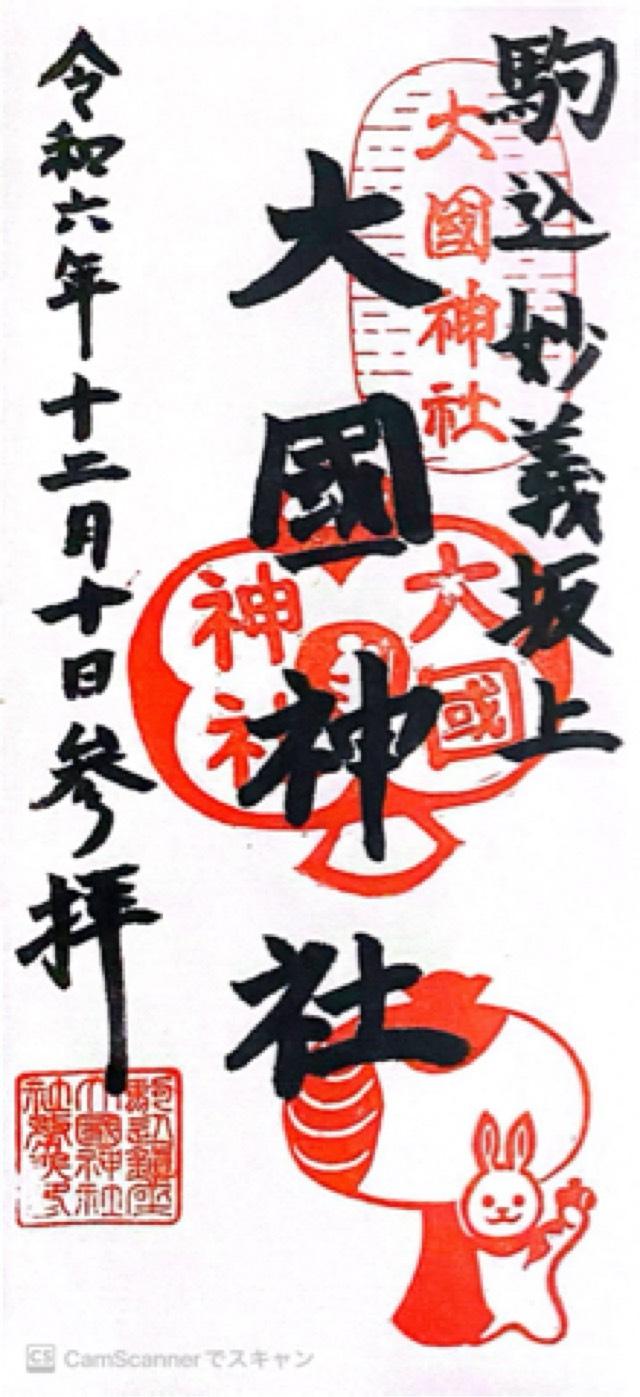 駒込妙義坂上
大國神社
大國神社
大國
神社
令和六年十二月十日参拝
CS CamScannerでスキャン